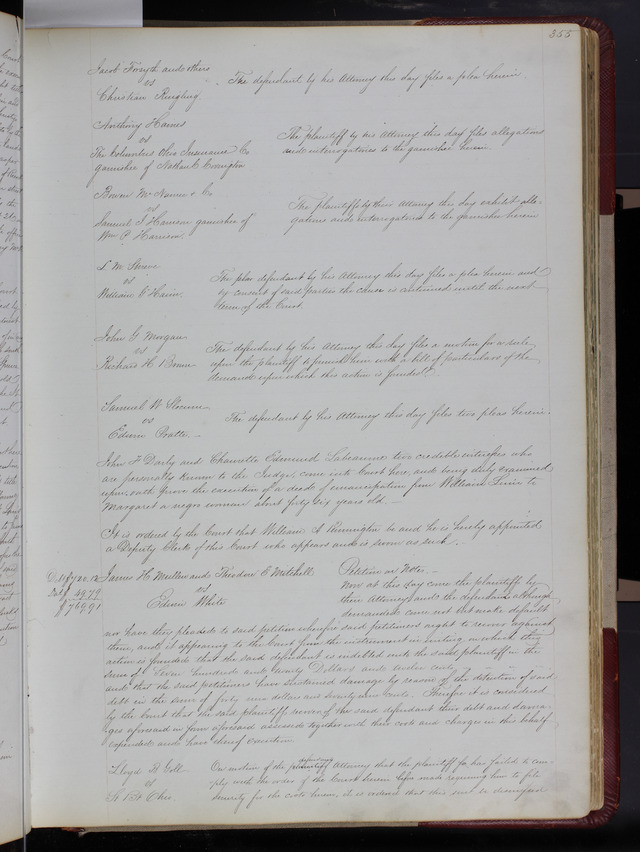 355
Jacob Forsyth and others
vs
Christian Ringling
The defendant by his Attorney this day files a plea herein.
Anthony Haines
vs
The Columbus Ohio Insurance Co
garnishee of Nathan C Covington
The plaintiff by his Attorney this day files allegations
and interrogatories to the garnishee herein.
Bowen McNamee & Co
vs
Samuel J Harrison garnishee of
Wm P Harrison
The plaintiffs by their Attorney this day exhibit alle-
gations and interrogatories to the garnishee herein
L M
vs
William C
The plea defendant by his Attorney this day files a plea herein and
by consent of said parties the cause is continued until the next
term of the Court.
John G Morgan
vs
Richard H Bowen
The defendant by his Attorney this day files a motion for a rule
upon the plaintiff to furnish him with a bill of particulars of the
demand upon which this action is founded.
Samuel W Slocum
vs
Edwin Pratte. —
The defendant by his Attorney this day files two pleas herein.
John F Darby and Edmund Labeaume two credible witnesses who
are personally known to the Judge, come into Court here, and being duly examined
upon oath prove the execution of a deed of emancipation from William to
Margaret a negro woman about forty six years old. —
It is ordered by the Court that William A Pennington be and he is hereby appointed
a Deputy Clerk of this Court who appears and is sworn as such. —
Debt $720.12
Dam $ 49.79
$769.91
James H Mullen and Theodore C Mitchell
vs
Edwin White
Petition on Note. —
Now at this day come the plaintiffs by
their Attorney, and the defendant although
demanded came not but makes default
nor have they pleaded to said petition whereof said petitioners right to recover against
them, and it appearing to the Court from the instrument in writing on which this
action is founded that the said defendant is indebted unto the said plaintiffs in the
sum of Seven hundred and twenty Dollars and twelve cents,
and that the said petitioners have sustained damage by reason of the detention of said
debt in the sum of forty nine dollars and seventy nine cents. Therefore it is considered
by the Court that the said plaintiffs recover of the said defendant their debt and dama-
ges aforesaid in form aforesaid assessed together with their costs and charges in this behalf
expended and have thereof execution.
Lloyd B
vs
St Bt Ohio.
On motion of the plaintiff defendants Attorney that the plaintiff has failed to com-
ply with the rules of the Court herein made requiring him to file
security for the costs herein, it is ordered that this suit be dismissed